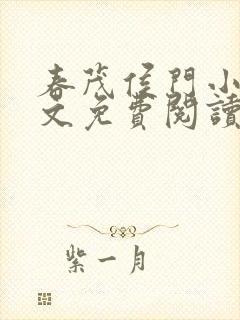 春茂侯門小
文免費閱讀
紫一月